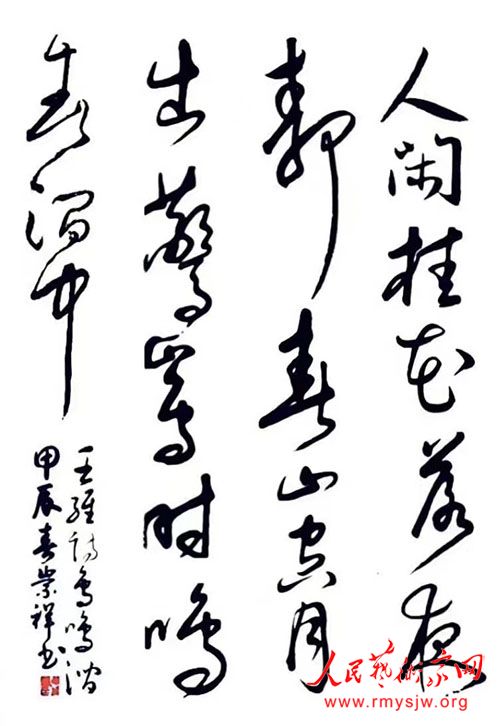 人闲桂花落夜
静春山空月
出驚山鸟时鸣
春涧中
王维诗鸟鸣涧
甲辰春崇祥书
人民藝術家网
www.rmysjw.org